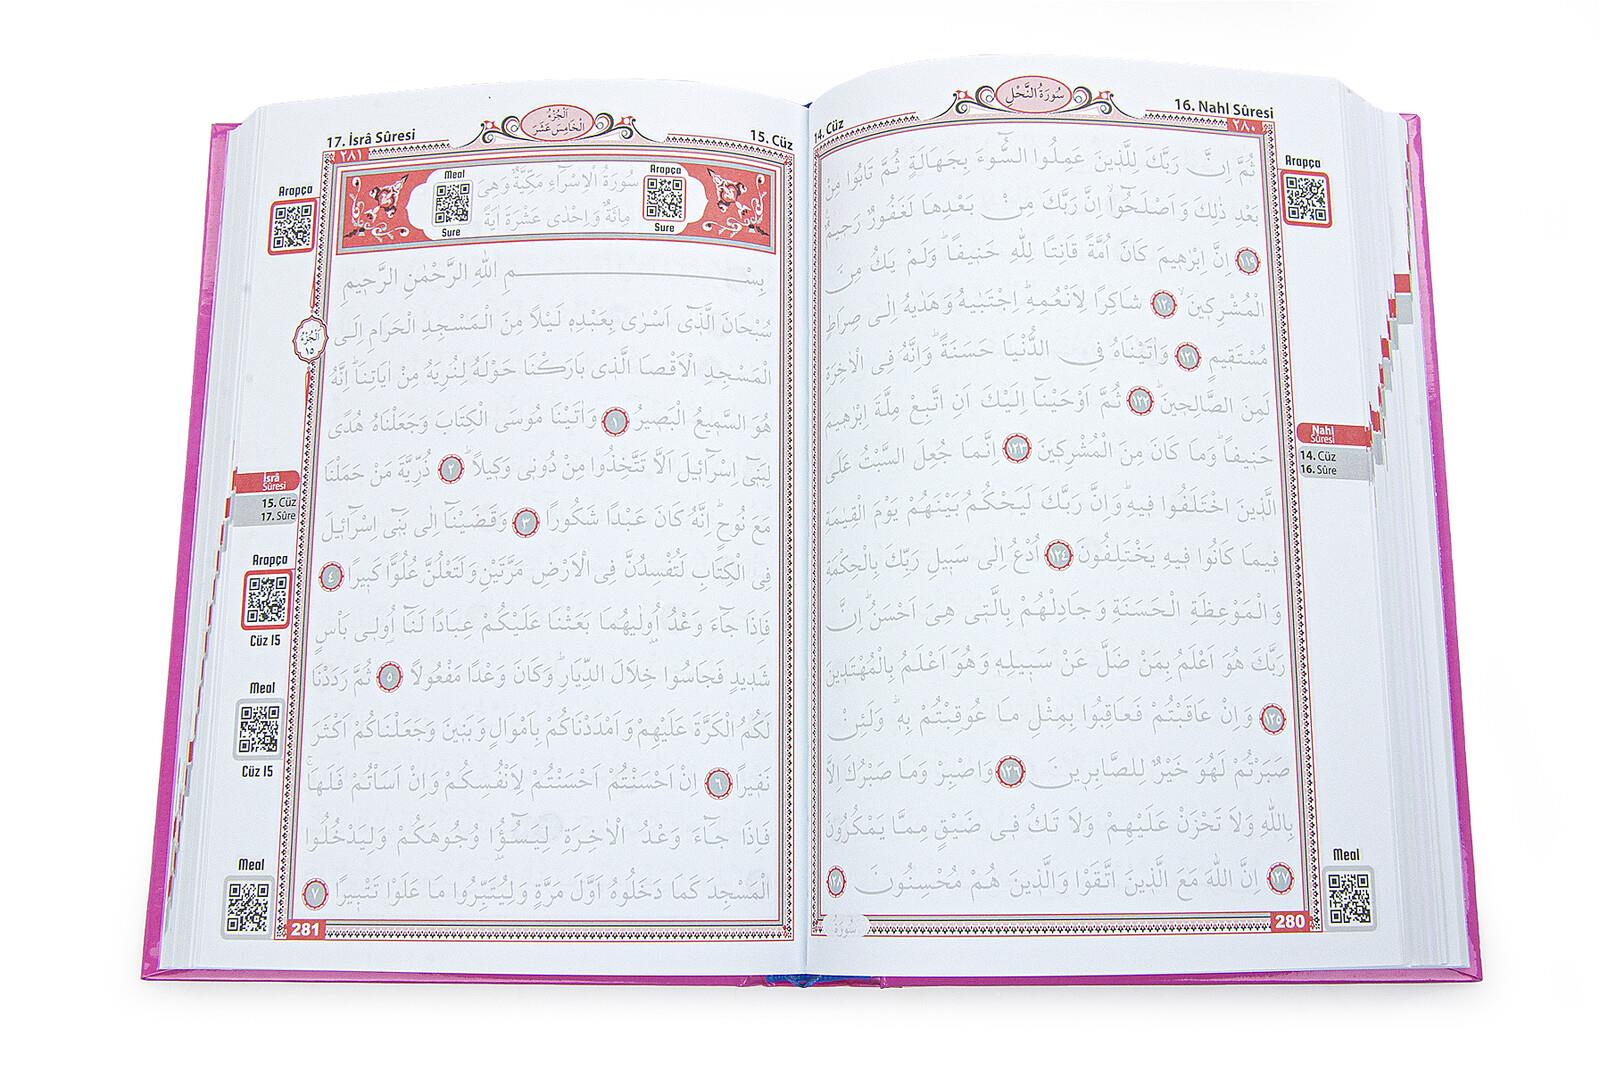 16. Nahl Sûresi
14. Cüz
سُورَةُ النَّحْلِ
٢٨٠
ثُمَّ اِنَّ رَبَّكَ لِلَّذ۪ينَ عَمِلُوا السُّٓوءَ بِجَهَالَةٍ ثُمَّ تَابُوا مِنْ
بَعْدِ ذٰلِكَ وَاَصْلَحُٓوا اِنَّ رَبَّكَ مِنْ بَعْدِهَا لَغَفُورٌ رَح۪يمٌ
﴿١١٩﴾ اِنَّ اِبْرٰه۪يمَ كَانَ اُمَّةً قَانِتًا لِلّٰهِ حَن۪يفًاۜ وَلَمْ يَكُ مِنَ
الْمُشْرِك۪ينَۙ ﴿١٢٠﴾ شَاكِرًا لِاَنْعُمِه۪ۜ اِجْتَبٰيهُ وَهَدٰيهُ اِلٰى صِرَاطٍ
مُسْتَق۪يمٍ ﴿١٢١﴾ وَاٰتَيْنَاهُ فِي الدُّنْيَا حَسَنَةًۜ وَاِنَّهُ فِي الْاٰخِرَةِ
لَمِنَ الصَّالِح۪ينَۜ ﴿١٢٢﴾ ثُمَّ اَوْحَيْنَٓا اِلَيْكَ اَنِ اتَّبِعْ مِلَّةَ اِبْرٰه۪يمَ
حَن۪يفًاۜ وَمَا كَانَ مِنَ الْمُشْرِك۪ينَ ﴿١٢٣﴾ اِنَّمَا جُعِلَ السَّبْتُ عَلَى
الَّذ۪ينَ اخْتَلَفُوا ف۪يهِۜ وَاِنَّ رَبَّكَ لَيَحْكُمُ بَيْنَهُمْ يَوْمَ الْقِيٰمَةِ
ف۪يمَا كَانُوا ف۪يهِ يَخْتَلِفُونَ ﴿١٢٤﴾ اُدْعُ اِلٰى سَب۪يلِ رَبِّكَ بِالْحِكْمَةِ
وَالْمَوْعِظَةِ الْحَسَنَةِ وَجَادِلْهُمْ بِالَّت۪ي هِيَ اَحْسَنُۜ اِنَّ
رَبَّكَ هُوَ اَعْلَمُ بِمَنْ ضَلَّ عَنْ سَب۪يلِه۪ وَهُوَ اَعْلَمُ بِالْمُهْتَد۪ينَ
﴿١٢٥﴾ وَاِنْ عَاقَبْتُمْ فَعَاقِبُوا بِمِثْلِ مَا عُوقِبْتُمْ بِه۪ۜ وَلَئِنْ
صَبَرْتُمْ لَهُوَ خَيْرٌ لِلصَّابِر۪ينَ ﴿١٢٦﴾ وَاصْبِرْ وَمَا صَبْرُكَ اِلَّا
بِاللّٰهِ وَلَا تَحْزَنْ عَلَيْهِمْ وَلَا تَكُ ف۪ي ضَيْقٍ مِمَّا يَمْكُرُونَ
﴿١٢٧﴾ اِنَّ اللّٰهَ مَعَ الَّذ۪ينَ اتَّقَوْا وَالَّذ۪ينَ هُمْ مُحْسِنُونَ ﴿١٢٨﴾
سُورَةُ
280
Arapça
Nahl
Sûresi
14. Cüz
16. Sûre
Meal
17. İsrâ Sûresi
15. Cüz
اَلْجُزْءُ
الْخَامِسَ عَشَرَ
٢٨١
Arapça
Sure
سُورَةُ الْاِسْرَٓاءِ مَكِّيَّةٌ وَهِيَ
مِائَةٌ وَاِحْدٰى عَشْرَةَ اٰيَةً
Meal
Sure
بِسْمِ اللّٰهِ الرَّحْمٰنِ الرَّح۪يمِ
سُبْحَانَ الَّذ۪ٓي اَسْرٰى بِعَبْدِه۪ لَيْلًا مِنَ الْمَسْجِدِ الْحَرَامِ اِلَى
الْمَسْجِدِ الْاَقْصَا الَّذ۪ي بَارَكْنَا حَوْلَهُ لِنُرِيَهُ مِنْ اٰيَاتِنَاۜ اِنَّهُ
هُوَ السَّم۪يعُ الْبَص۪يرُ ﴿١﴾ وَاٰتَيْنَا مُوسَى الْكِتَابَ وَجَعَلْنَاهُ هُدًى
لِبَن۪ٓي اِسْرَٓائ۪يلَ اَلَّا تَتَّخِذُوا مِنْ دُون۪ي وَك۪يلًاۜ ﴿٢﴾ ذُرِّيَّةَ مَنْ حَمَلْنَا
مَعَ نُوحٍۜ اِنَّهُ كَانَ عَبْدًا شَكُورًا ﴿٣﴾ وَقَضَيْنَٓا اِلٰى بَن۪ٓي اِسْرَٓائ۪يلَ
فِي الْكِتَابِ لَتُفْسِدُنَّ فِي الْاَرْضِ مَرَّتَيْنِ وَلَتَعْلُنَّ عُلُوًّا كَب۪يرًا ﴿٤﴾
فَاِذَا جَٓاءَ وَعْدُ اُو۫لٰيهُمَا بَعَثْنَا عَلَيْكُمْ عِبَادًا لَنَٓا اُو۬ل۪ي بَأْسٍ
شَد۪يدٍ فَجَاسُوا خِلَالَ الدِّيَارِۜ وَكَانَ وَعْدًا مَفْعُولًا ﴿٥﴾ ثُمَّ رَدَدْنَا
لَكُمُ الْكَرَّةَ عَلَيْهِمْ وَاَمْدَدْنَاكُمْ بِاَمْوَالٍ وَبَن۪ينَ وَجَعَلْنَاكُمْ اَكْثَرَ
نَف۪يرًا ﴿٦﴾ اِنْ اَحْسَنْتُمْ اَحْسَنْتُمْ لِاَنْفُسِكُمْ وَاِنْ اَسَأْتُمْ فَلَهَاۜ
فَاِذَا جَٓاءَ وَعْدُ الْاٰخِرَةِ لِيَسُٓؤُ۫ا وُجُوهَكُمْ وَلِيَدْخُلُوا
الْمَسْجِدَ كَمَا دَخَلُوهُ اَوَّلَ مَرَّةٍ وَلِيُتَبِّرُوا مَا عَلَوْا تَتْب۪يرًا ﴿٧﴾
281
Arapça
اَلْجُزْءُ
١٥
İsrâ
Sûresi
15. Cüz
17. Sûre
Arapça
Cüz 15
Meal
Cüz 15
Meal